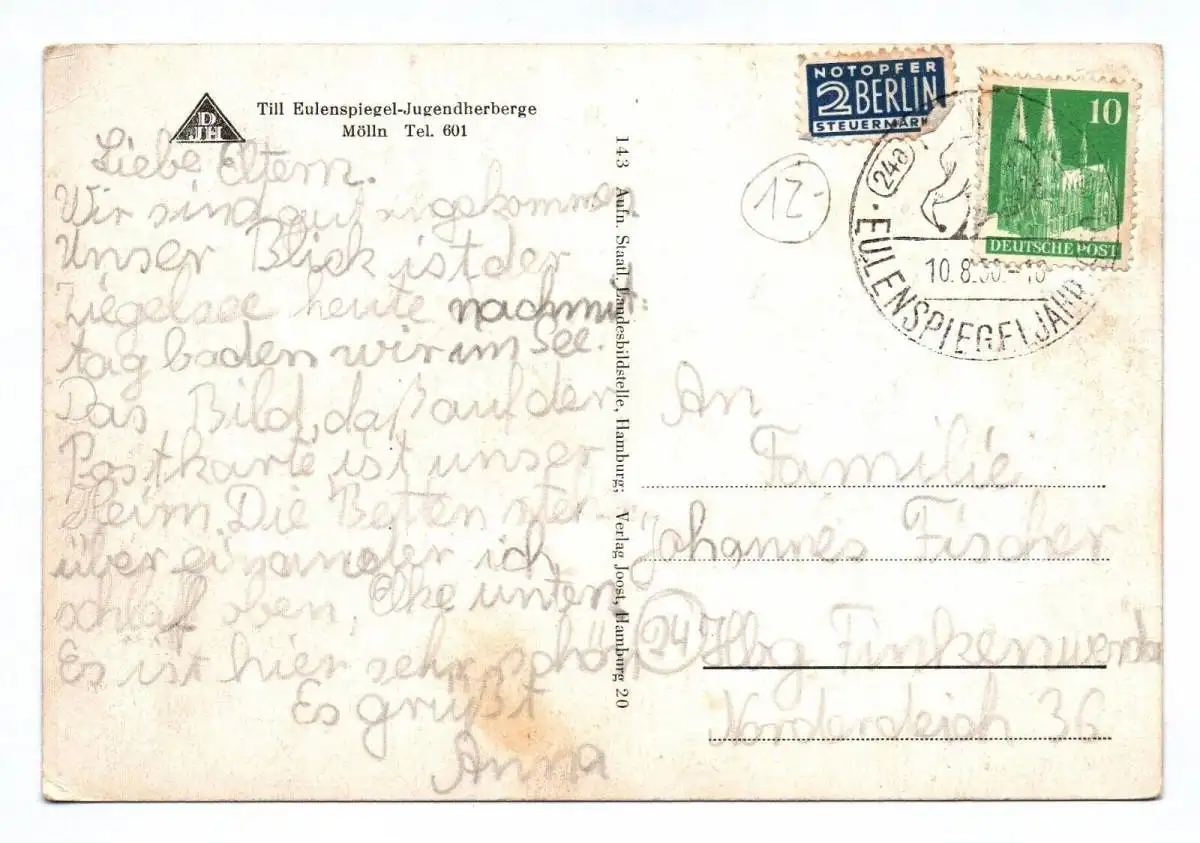 D
JH
Till Eulenspiegel-Jugendherberge
Mölln Tel. 601
Liebe Eltern.
Wir sind gut angekommen
Unser Blick ist der
Ziegelsee heute nachmit:
tag baden wir im See.
Das Bild, daß auf der
Postkarte ist unser
Heim. Die Betten steh
über einander ich
schlaf oben, Elke unten
Es ist hier sehr schön
Es grüßt
Anna
143 Aufn. Staatl. Landesbildstelle, Hamburg; Verlag Joost, Hamburg 20
NOTOPFER
2 BERLIN
STEUERMARK
10
DEUTSCHE POST
12-
24a
10.8.50-18
EULENSPIEGELJAHR
An
Familie
Johannes Fischer
24 Hbg Finkenwerder
Norderdeich 36